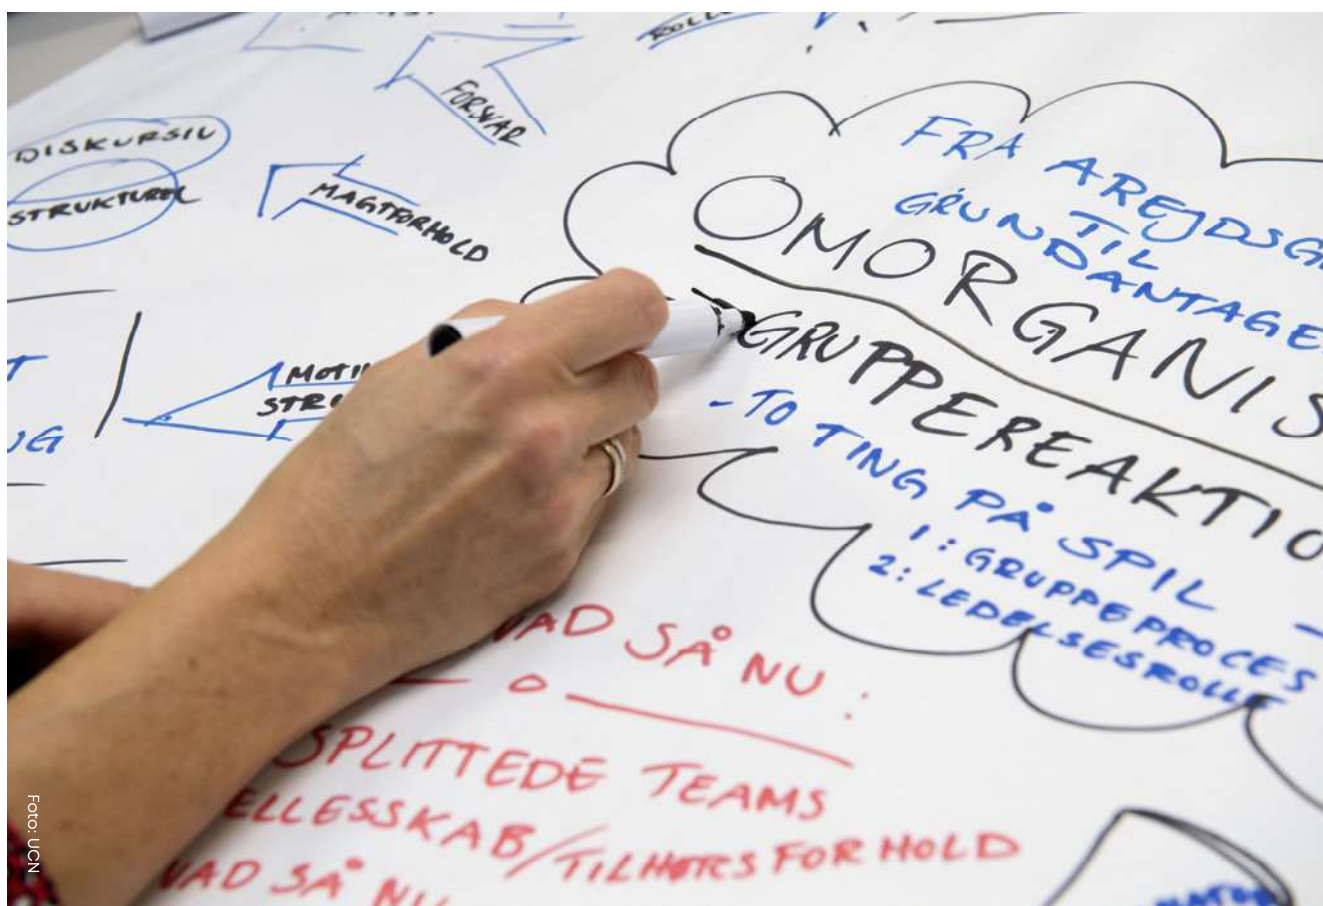 FORSVAR
DISKURSIV
STRUKTUREL
MAGTFORHOLD
FRA AREJDSG
TIL
GRUNDANTAGE
OMORGANIS
GRUPPEREAKTIO
- TO TING PÅ SPIL
1: GRUPPEPROCES
2: LEDELSESROLLE
VAD SÅ NU:
SPLITTEDE TEAMS
ELLESSKAB/TILHØRSFORHOLD
VAD SÅ NU
Foto: UCN